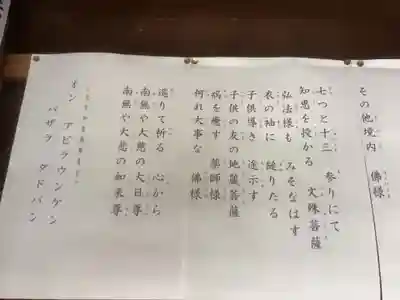 その他境内 佛様
七つと十三 参りにて
知恵を授かる 文殊菩薩
弘法様も みそなはす
衣の袖に 縋りたる
子供導き 途示す
子供の友の 地蔵菩薩
病を癒す 薬師様
何れ大事な 佛様
巡りて祈る 心から
南無や大慈の大日尊
南無や大悲の如来尊
オン アビラウンケン
バザラ タドバン